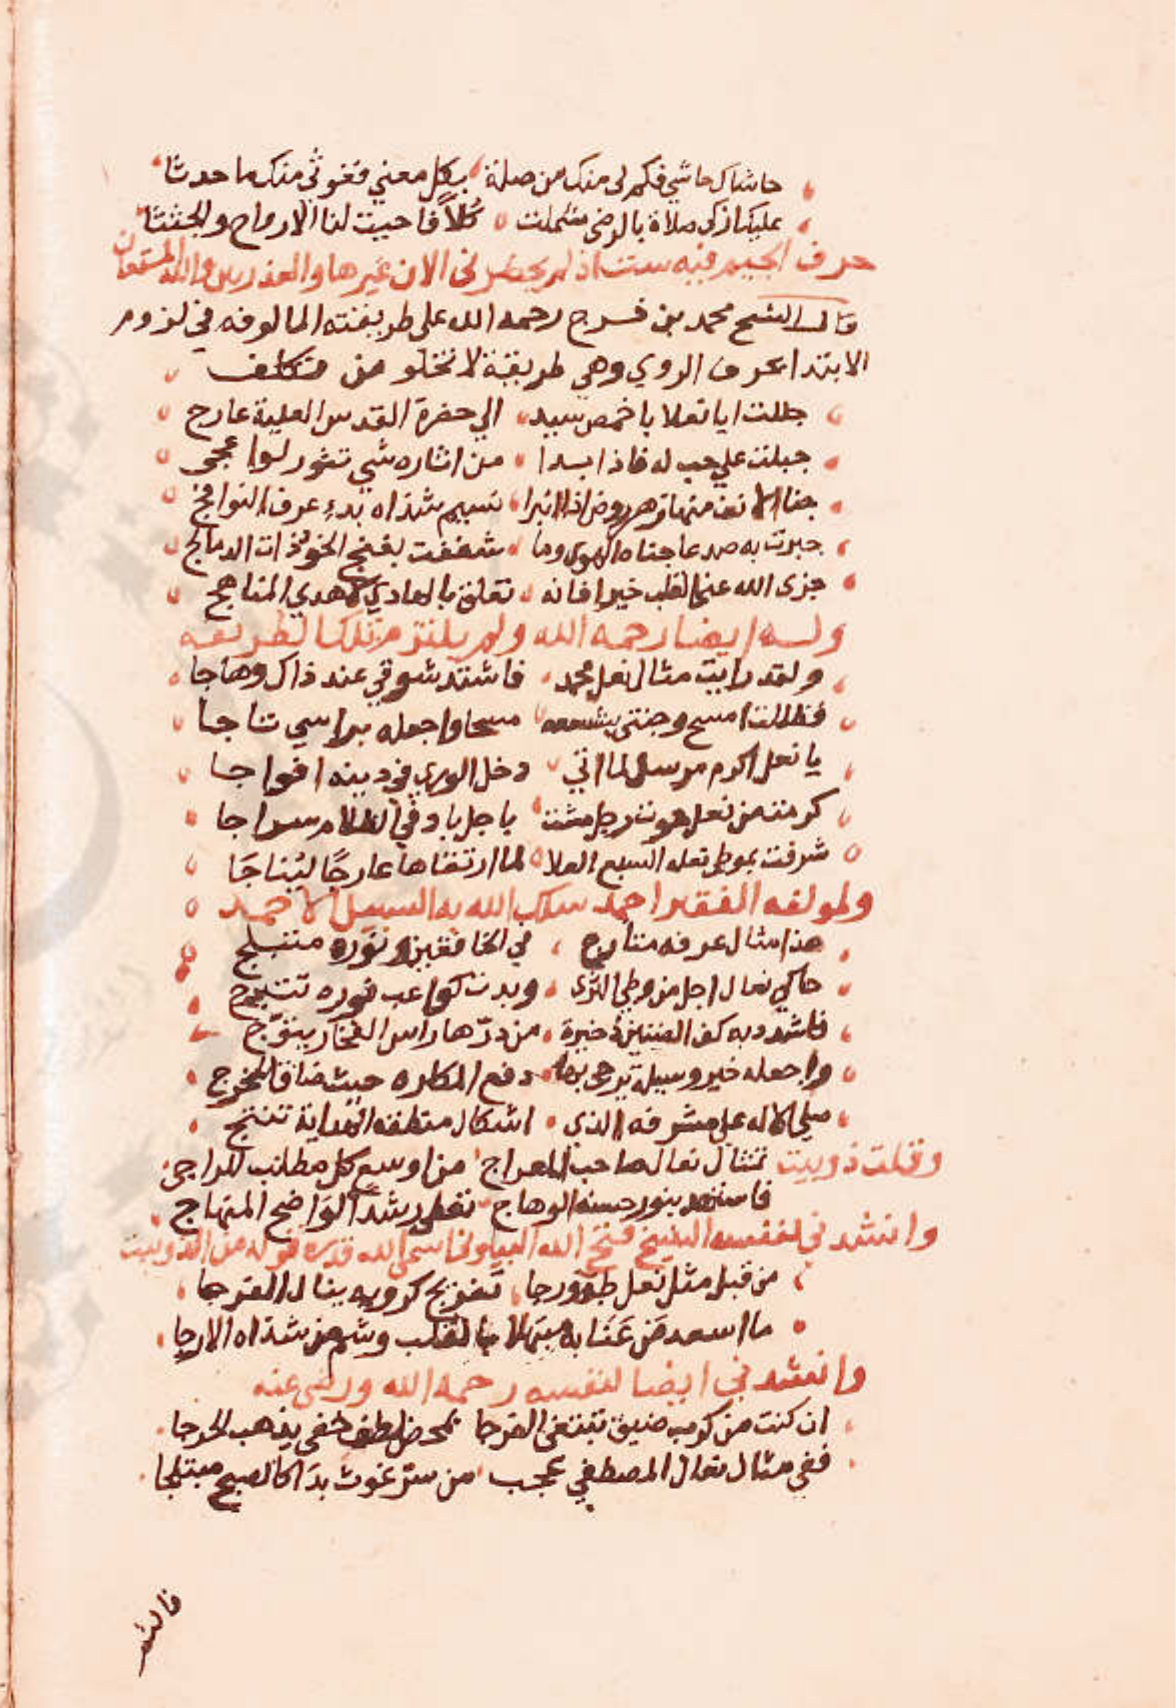 حاشاك حاشي فكم لي منك من صلة بكل معني فغوثي منك ما حدثا
عليك ازكي صلاة بالرضي شملت كلا فاحيت لنا الارواح والجثثا
حرف الجيم فيه ست اذ لم يحضرني الان غيرها والعذر بين والله المستعان
قال الشيخ محمد بن فرج رحمه الله علي طريقته المالوفه في لزوم
الابتدا بحرف الروي وهي طريقة لا تخلو من تكلف
جللت ايا نعلا باخمص سيد الي حضرة القدس العلية عارج
جبلت علي حب له فاذا بدا من اثاره شي تثور لواعجي
جنا الانف منها زهر روض اذا انبرا نسيم شذاه بدء عرف النوافج
جبرت به صدعا جناه الهوي وما شغفت بغنج الخود ذات الدمالج
جزي الله عني القلب خيرا فانه تعلق بالهادي لاهدي المناهج
وله ايضا رحمه الله ولم يلتزم تلك الطريقه
ولقد رايت مثال نعل محمد فاشتد شوقي عند ذاك وهاجا
فظللت امسح وجنتي بشسعه مسحا واجعله براسي تاجا
يا نعل اكرم مرسل لما اتي دخل الوري في دينه افواجا
كرمت من نعل هوت رجل مشت ياجل باد في الظلام سراجا
شرفت بموطي نعله السبع العلا لما ارتقاها عارجا ليناجا
ولمولفه الفقير احمد سلك الله به السبيل الاحمد
هذا مثال عرفه متارج في الخافقين ونوره متبلج
حاكي نعال اجل من وطي الثري وبدت كواعب نوره تتبرج
فاشدد به كف الضنين ذخيرة من درها راس الفخار يتوج
واجعله خير وسيلة يرجي بها دفع المكاره حيث ضاق المخرج
صلي الاله علي مشرفه الذي اشكال منطقه الهداية تنتج
وقلت ذوبيت تمثال نعال صاحب المعراج من اوسع كل مطلب للراجي
فاستهد بنور حسنه الوهاج تعطي رشدا لواضح المنهاج
وانشدني لنفسه الشيخ فتح الله البيلوني اسمي الله قدره قوله من الذوبيت
من قبل مثل نعل طه ورجا تفريج كروبه ينال الفرجا
ما اسعد من عنا به مبتهلا بالقلب وشم من شذاه الارجا
وانشدني ايضا لنفسه رحمه الله ورضي عنه
ان كنت من كرب ضيق تبتغي الفرجا بمحض لطف خفي يذهب الحرجا
ففي مثال نعال المصطفي عجب من سر غوث بدا كالصبح مبتلجا
فالثم